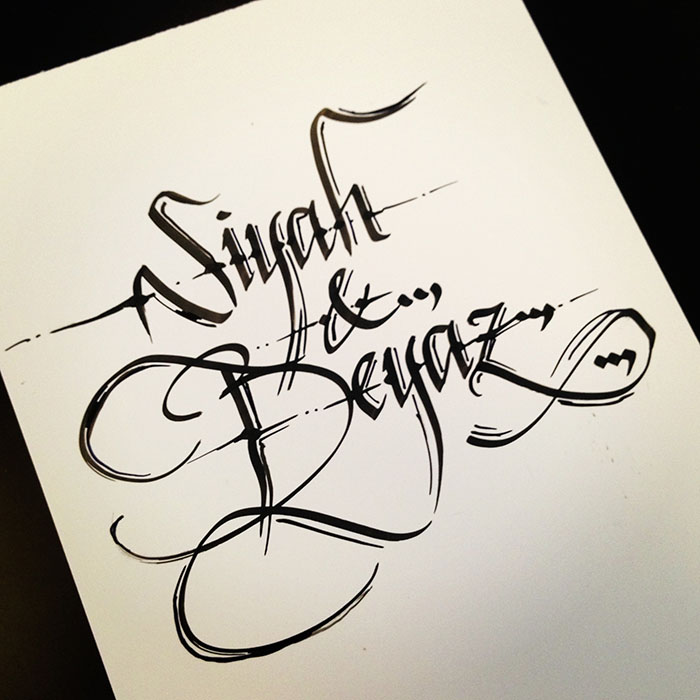 Siyah
&
Beyaz